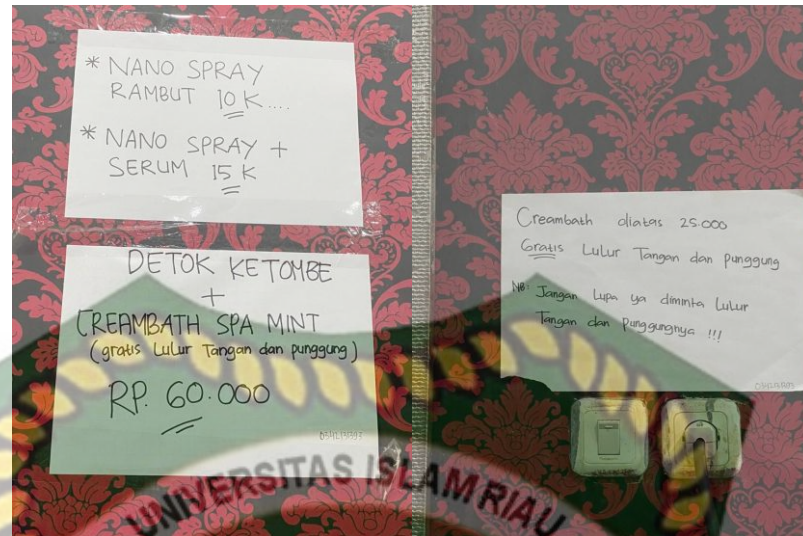 * NANO SPRAY
RAMBUT 10 K....
* NANO SPRAY +
SERUM 15 K
DETOK KETOMBE
+
CREAMBATH SPA MINT
(gratis Lulur Tangan dan punggung)
RP. 60.000
Creambath diatas 25.000
Gratis Lulur Tangan dan Punggung
NB: Jangan Lupa ya diminta Lulur
Tangan dan Punggungnya !!!
UNIVERSITAS ISLAM RIAU